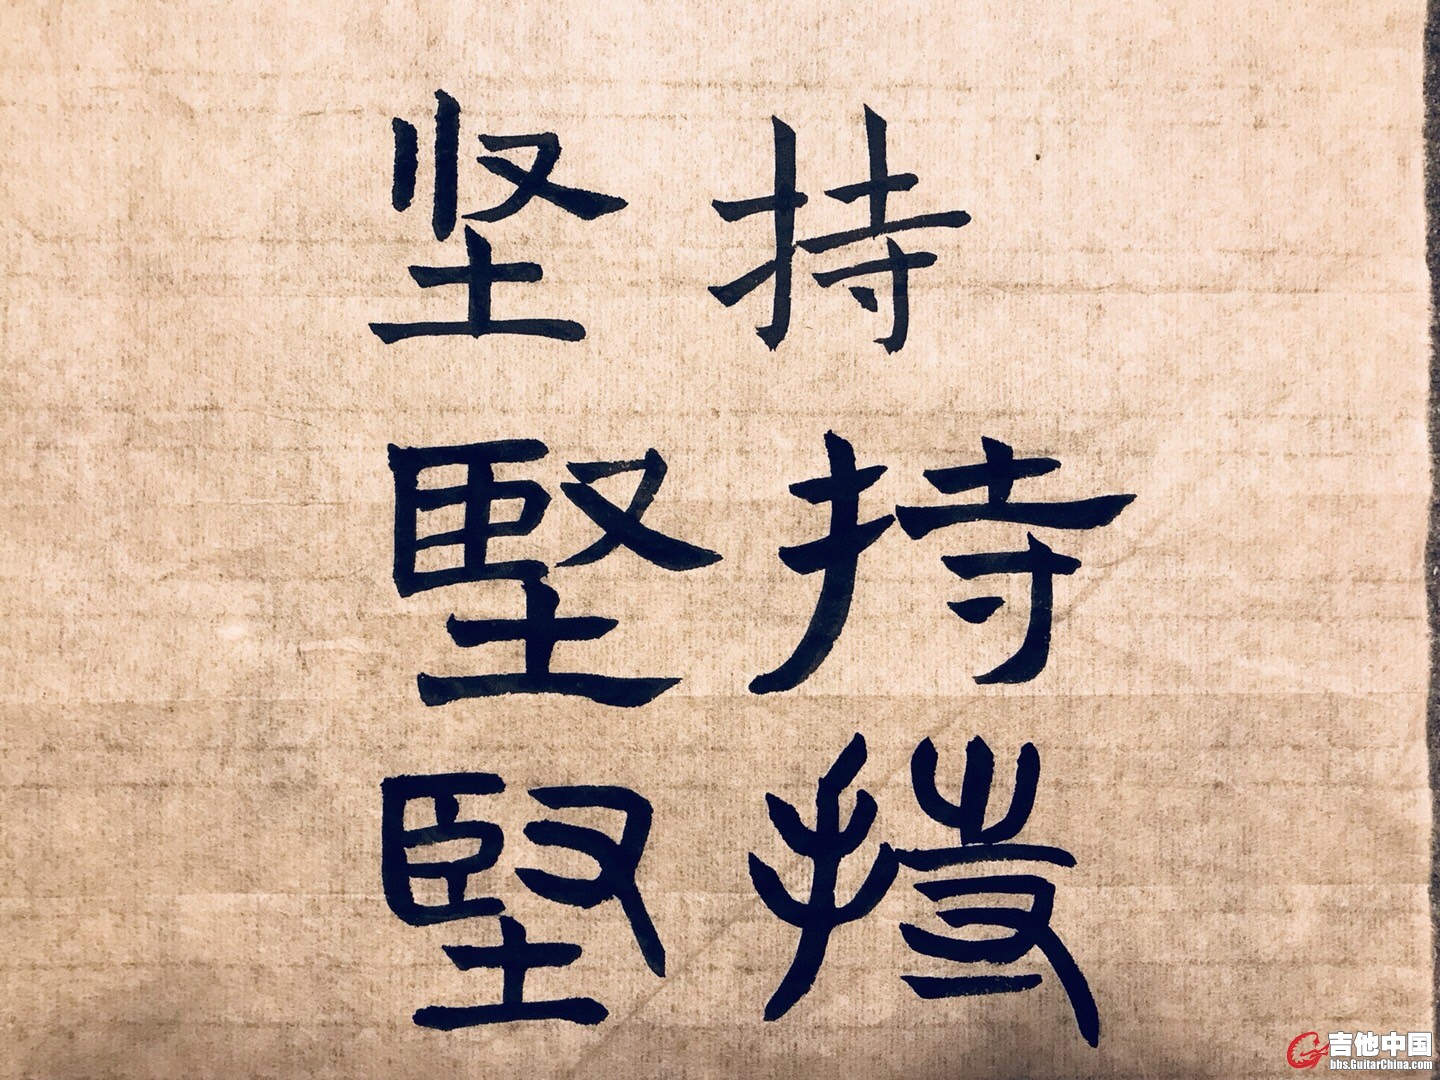 坚持
堅持
堅持
吉他中国
bbs.GuitarChina.com